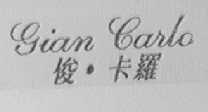 Gian Carlo
俊・卡羅